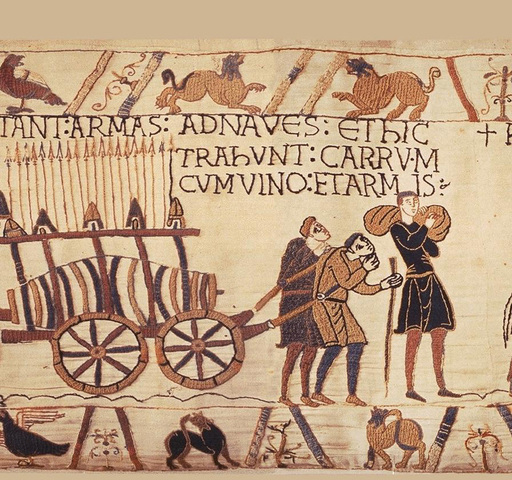 TANT:ARMAS: ADNAVES: EThIC
TRAhUNT:CARRVM
CVMVINO:ETARMIS:
+